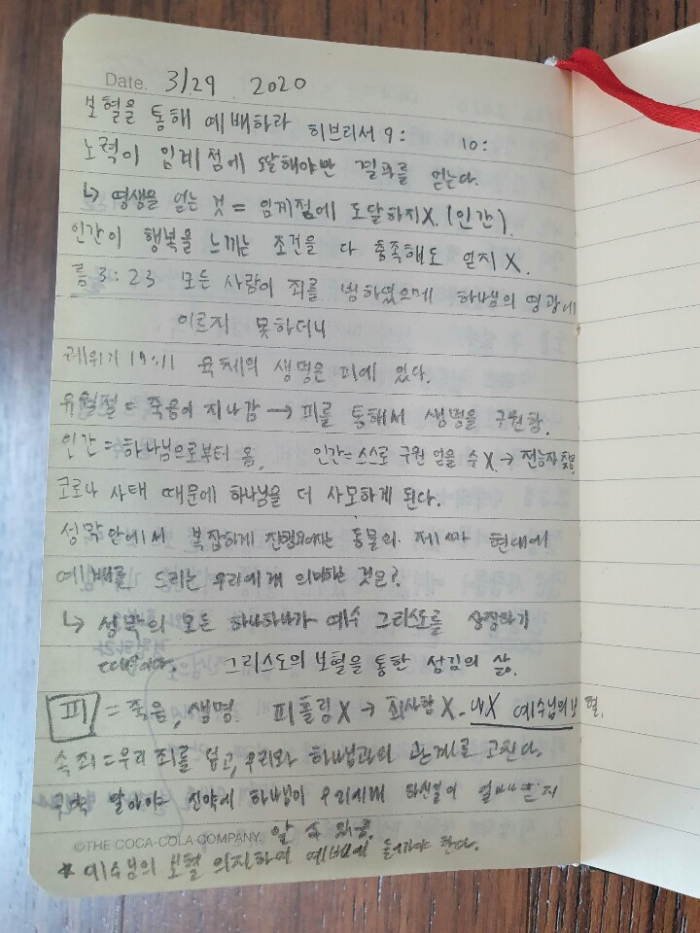 Date. 3/29 2020
보혈을 통해 예배하라 히브리서 9: 10:
노력이 임계점에 도달해야만 결과를 얻는다.
↳ 영생을 얻는 것 = 임계점에 도달하지X. (인간).
인간이 행복을 느끼는 조건을 다 충족해도 얻지 X.
롬 3:23 모든 사람이 죄를 범하였으매 하나님의 영광에
이르지 못하더니
레위기 17:11 육체의 생명은 피에 있다.
유월절 = 죽음이 지나감 → 피를 통해서 생명을 구원함.
인간 = 하나님으로부터 옴, 인간 = 스스로 구원 얻을 수 X. → 전능자 찾음.
코로나 사태 때문에 하나님을 더 사모하게 된다.
성막안에서 복잡하게 진행되어지는 동물의 제사가 현대에
예배를 드리는 우리에게 의미하는 것은?
↳ 성막의 모든 하나하나가 예수 그리스도를 상징하기
때문이다. 그리스도의 보혈을 통한 섬김의 삶.
피 = 죽음, 생명. 피흘림X → 죄사함X. 예수님의 보혈.
속죄 = 우리 죄를 덮고, 우리와 하나님과의 관계를 고친다.
알아야 신약에 하나님이 우리에게 하신일이
알 수 있음.
©THE COCA-COLA COMPANY.
* 예수님의 보혈 의지하여 예배에 들어가야 한다.